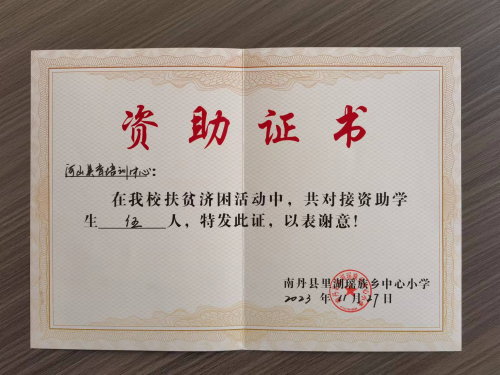 资助证书
河山美育培训中心：
在我校扶贫济困活动中，共对接资助学
生 伍 人，特发此证，以表谢意！
南丹县里湖瑶族乡中心小学
2023 年 11 月 27 日